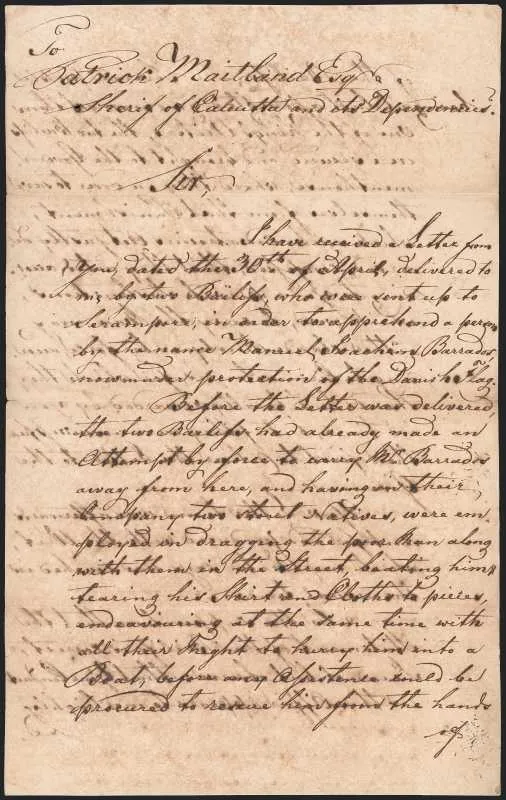 To
Patrick Maitland Esqr
Sherif of Calcutta and its Dependencies.
Sir,
I have received a Letter from
you, dated the 30th of April, delivered to
me by two Bailifs, who were sent up to
Serampore, in order to apprehend a person
by the name Manuel Joachim Barrados,
now under protection of the Danish Flag.
Before the Letter was delivered,
the two Bailifs had already made an
Attempt by force to carry Mr Barrados
away from here, and having in their
Company two Natives, were em,
ployed in dragging the poor Man along
with them in the Street, beating him,
tearing his Shirt and Cloths to pieces,
endeavouring at the same time with
all their Might to hurry him into a
Boat, before any Assistence could be
procured to rescue him from the hands
of